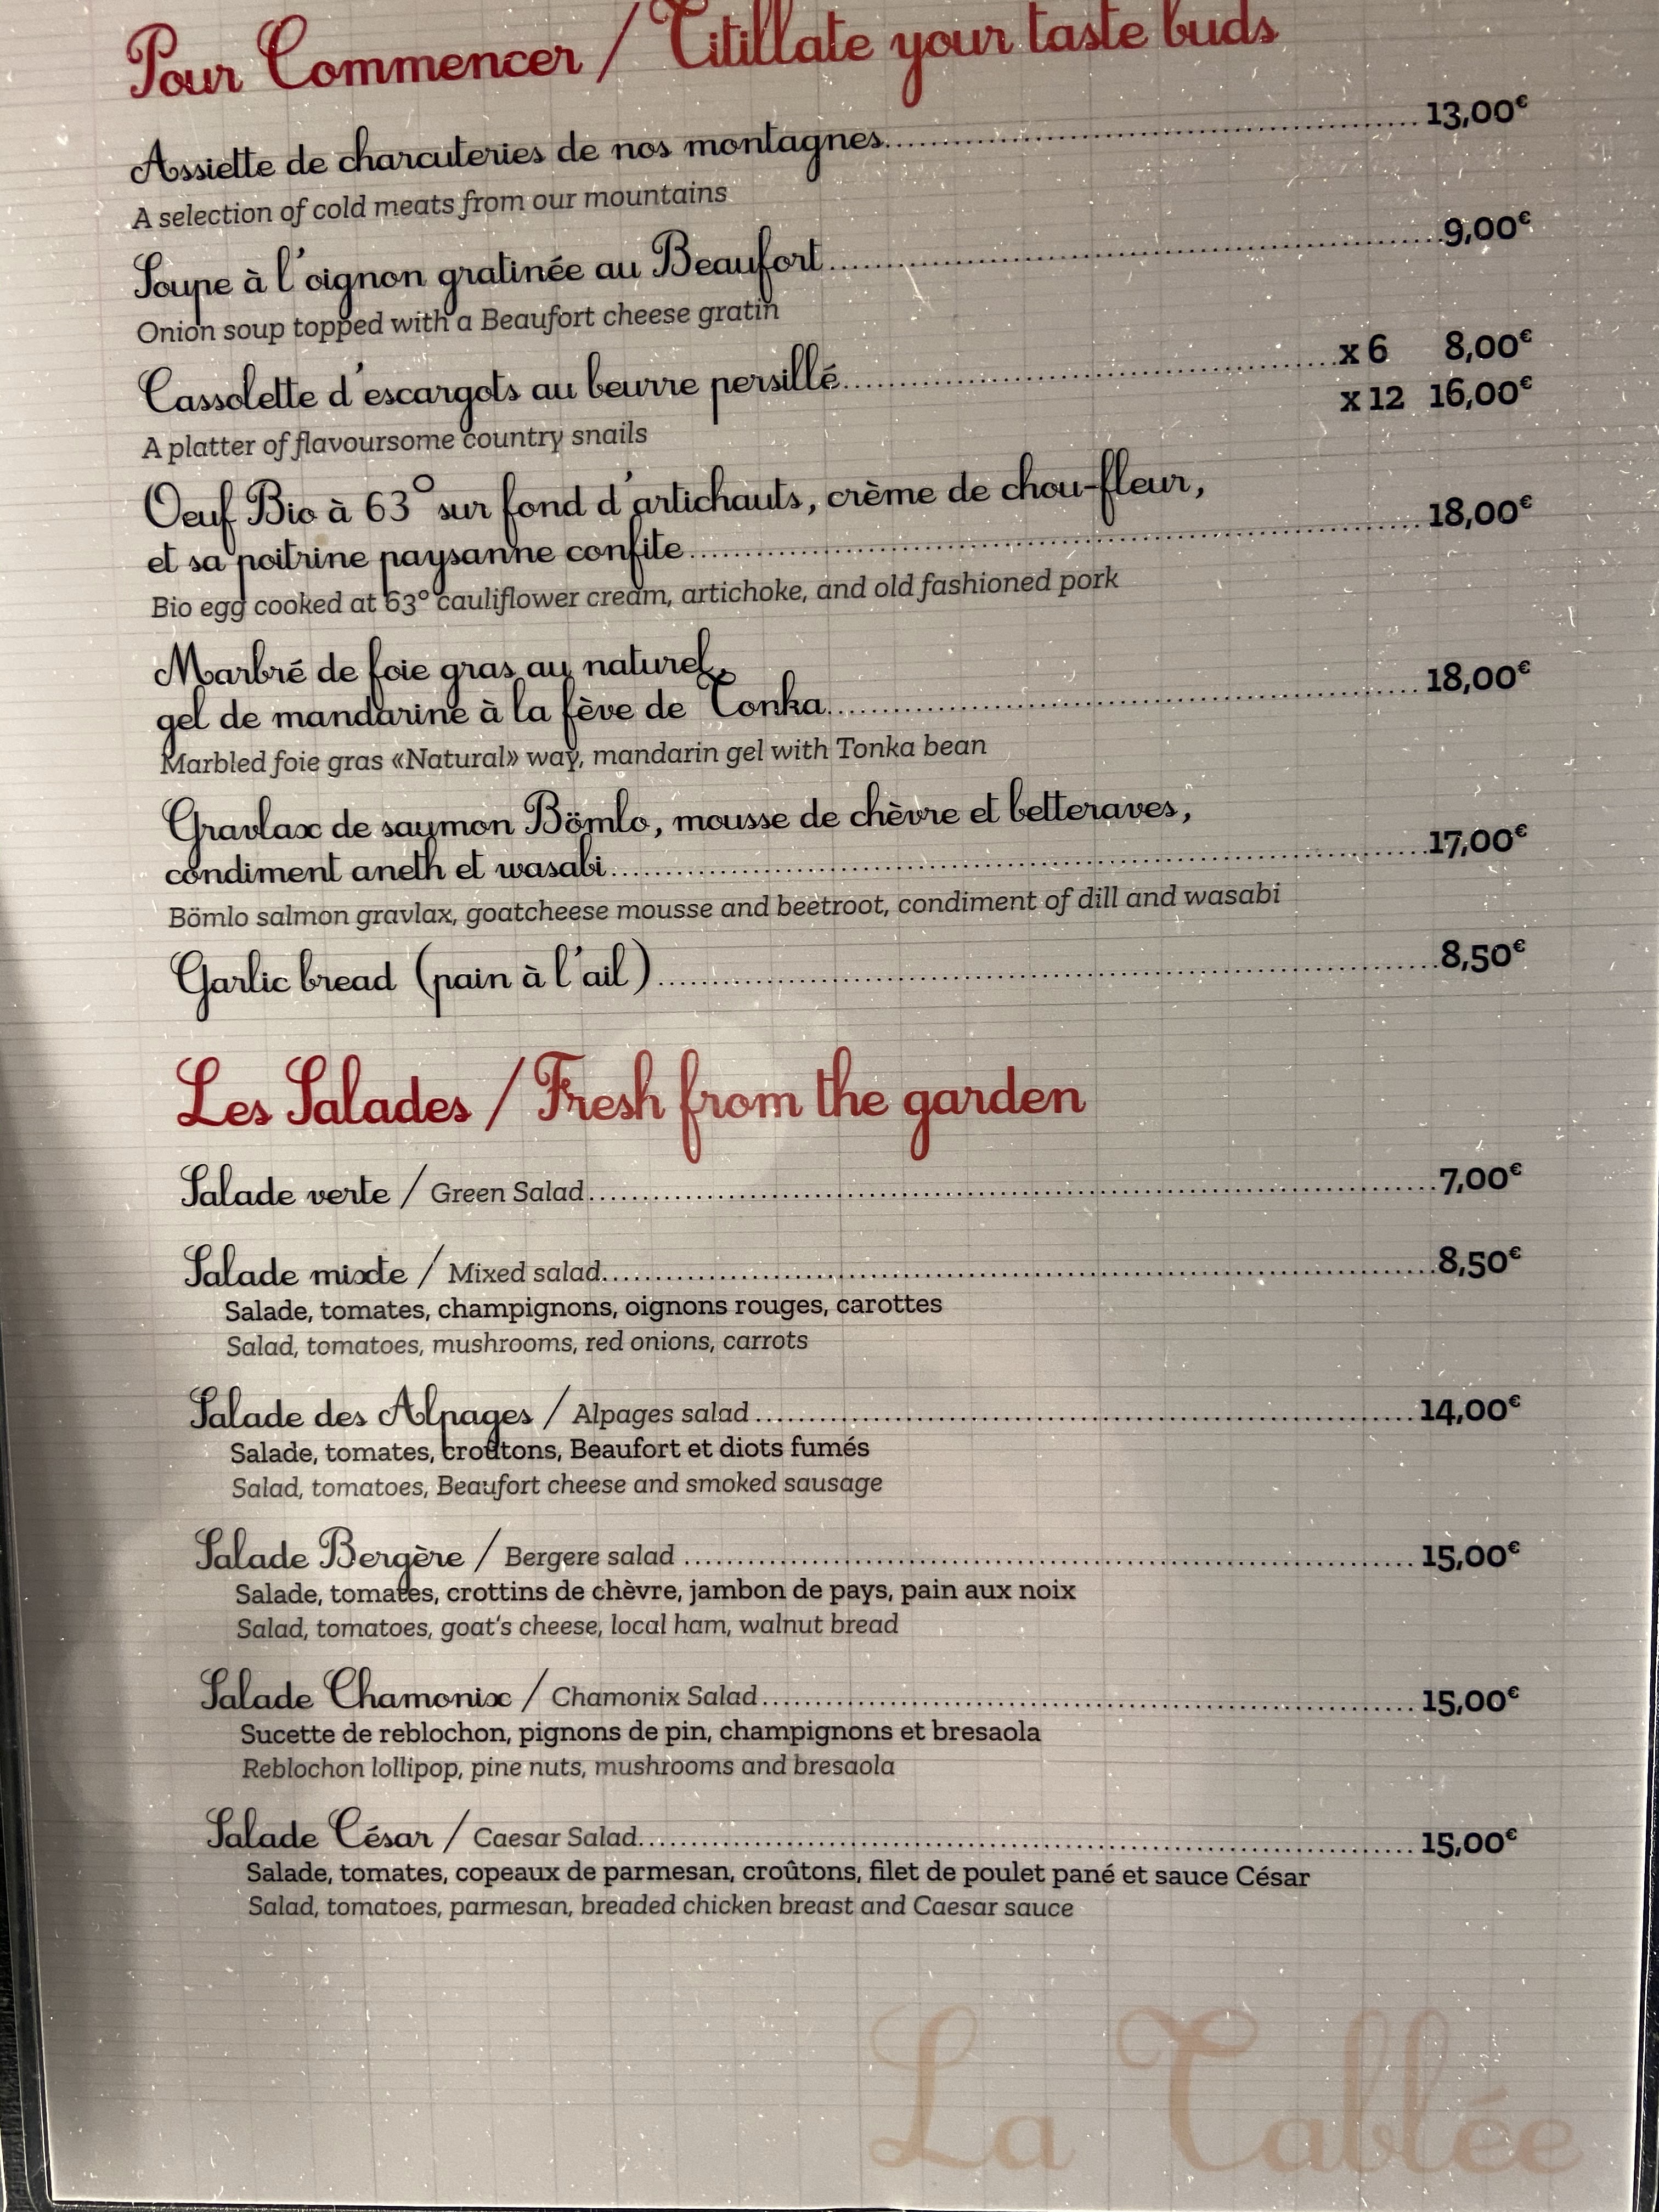 Pour Commencer / Titillate your taste buds
Assiette de charcuteries de nos montagnes.......... 13,00€
A selection of cold meats from our mountains
Soupe à l'oignon gratinée au Beaufort.......... 9,00€
Onion soup topped with a Beaufort cheese gratin
Cassolette d'escargots au beurre persillé.......... x 6 8,00€
x 12 16,00€
A platter of flavoursome country snails
Oeuf Bio à 63° sur fond d'artichauts, crème de chou-fleur,
et sa poitrine paysanne confite.......... 18,00€
Bio egg cooked at 63° cauliflower cream, artichoke, and old fashioned pork
Marbré de foie gras au naturel,
gel de mandarine à la fève de Tonka.......... 18,00€
Marbled foie gras «Natural» way, mandarin gel with Tonka bean
Gravlax de saumon Bömlo, mousse de chèvre et betteraves,
condiment aneth et wasabi.......... 17,00€
Bömlo salmon gravlax, goatcheese mousse and beetroot, condiment of dill and wasabi
Garlic bread (pain à l'ail).......... 8,50€
Les Salades / Fresh from the garden
Salade verte / Green Salad.......... 7,00€
Salade mixte / Mixed salad.......... 8,50€
Salade, tomates, champignons, oignons rouges, carottes
Salad, tomatoes, mushrooms, red onions, carrots
Salade des Alpages / Alpages salad.......... 14,00€
Salade, tomates, croûtons, Beaufort et diots fumés
Salad, tomatoes, Beaufort cheese and smoked sausage
Salade Bergère / Bergere salad .......... 15,00€
Salade, tomates, crottins de chèvre, jambon de pays, pain aux noix
Salad, tomatoes, goat's cheese, local ham, walnut bread
Salade Chamonix / Chamonix Salad.......... 15,00€
Sucette de reblochon, pignons de pin, champignons et bresaola
Reblochon lollipop, pine nuts, mushrooms and bresaola
Salade César / Caesar Salad.......... 15,00€
Salade, tomates, copeaux de parmesan, croûtons, filet de poulet pané et sauce César
Salad, tomatoes, parmesan, breaded chicken breast and Caesar sauce
La Tablée